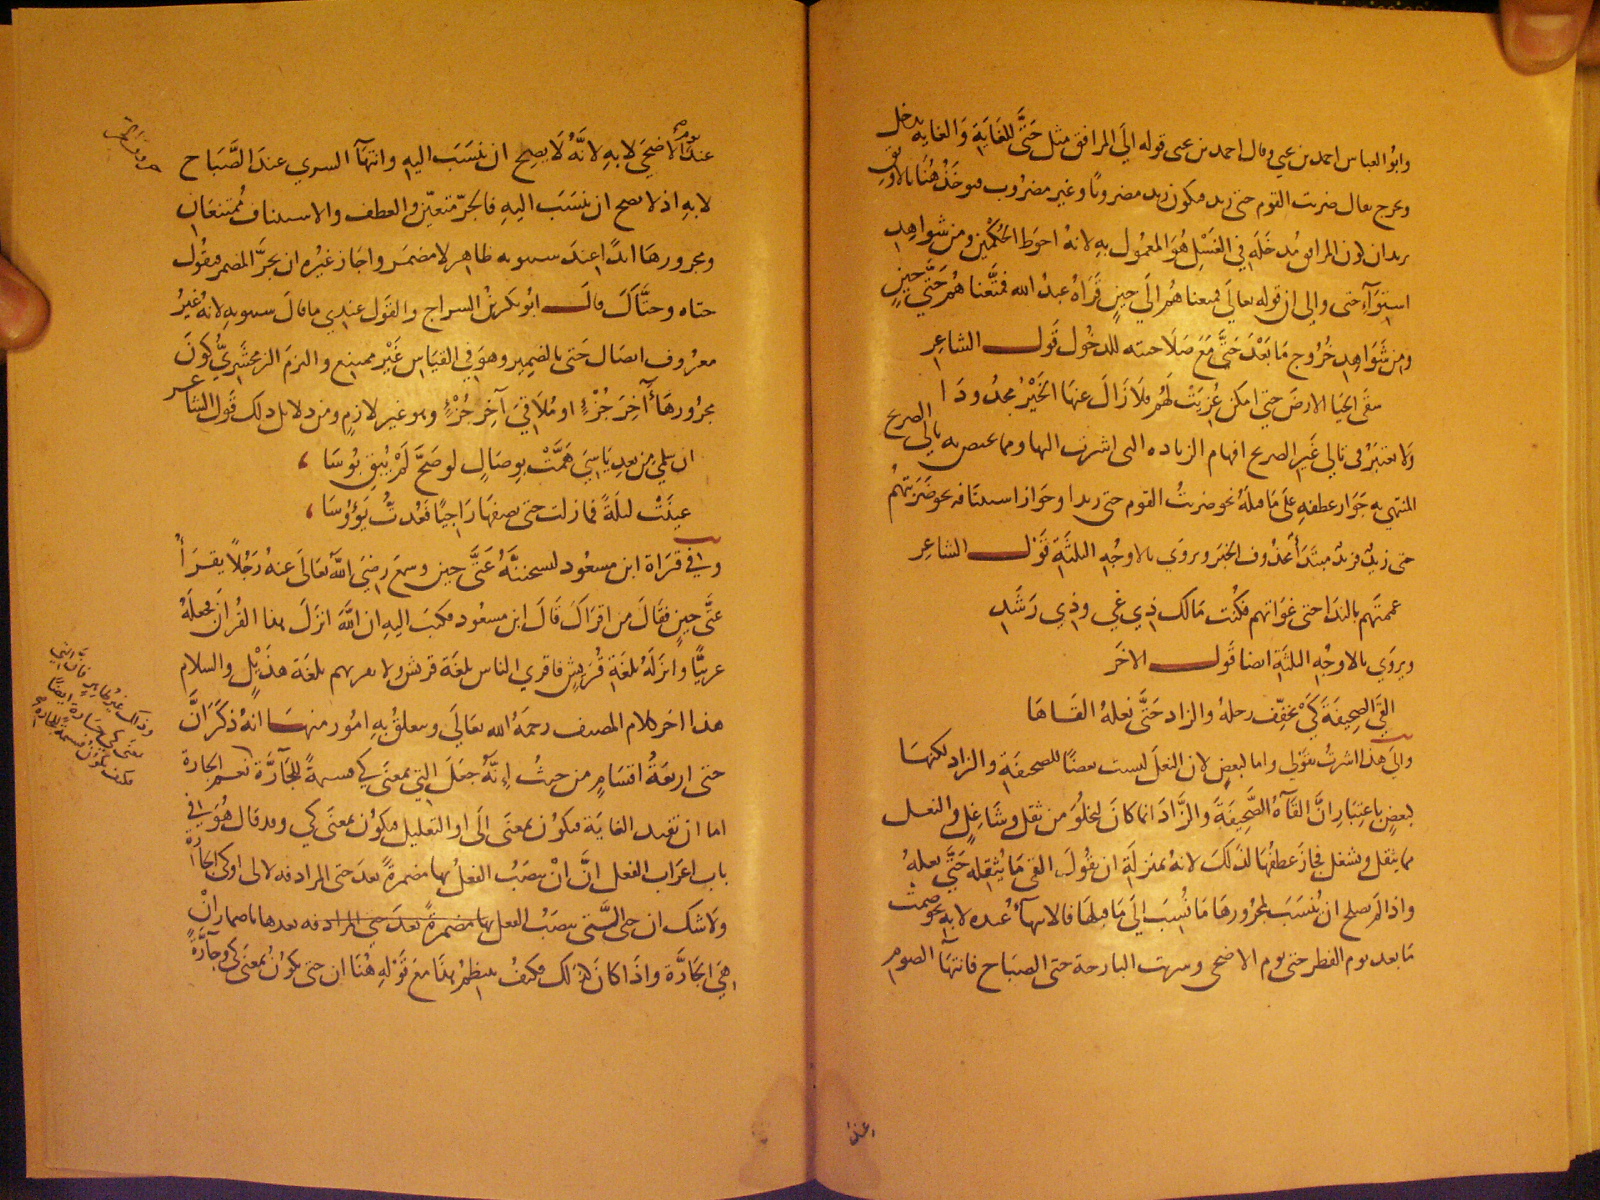 وابو العباس احمد بن يحيى وقال احمد بن يحيى قوله الي المرافق مثل حَتَّى للغَايَةِ وَالغايه يدخل
ويخرج يقال ضربت القوم حتى زيد فيكون زيد مضروبًا وغير مضروب فيوخذ هُنَا بالاوثق
يريد ان كون المرافق مُدخَلَه في الغَسْلِ هُوَ المعمُول بهِ لانهُ احوَط الحُكْمَين ومن شواهِدِ
استِوَآءِ حتى والى ان قوله تعالَى فمتعناهُم الَى حِينٍ قَرَاهُ عبدُ الله فمتَّعنَاهُمْ حَتَّي حِينٍ
ومن شَوَاهِدِ خُرُوج مَا بَعْدَ حَتَّي مَعَ صَلاحيته للدخُول قَول الشاعِرِ
سقَى الحيَا الارضَ حتى امكنٍ عُزِيَتْ لَهُم فلَا زَالَ عنهَا الخَيْرُ مجدُودَا
وَلا تعتبَرُ في تالي غَير الصريح افهام الزياده التى اشرت اليها ومما يختص به تالى الصريح
المنتهي به جَوَاز عطفهِ علَى مَا قبلَهُ نحو ضربتُ القوم حتى زيدا وجَواز استئنافه نحو ضَرَبتهُم
حتى زيدٌ فزيدٌ مبتَدَأ محذُوف الخبَر ويروَي بالاوجُهِ الثلثَةِ قَوْل الشاعِر
عممتَهم بالندَا حتى غوَاتهم فكُنْتَ مَالك ذِي غي وذِي رَشَدِ
ويروَي بالاوجُهِ الثلثَةِ ايضا قَول الاخَر
القَى الصحِيفَةَ كَيْ يخفِّف رحلهُ والزاد حَتَّى نعلهُ القَاهَا
والَي هذا اشرتُ بقَولي واما لبعضٍ لان النعلَ ليست بعضًا للصحيفَةِ والزاد لكنهَا
بعضٍ باعتبَارِ انَّ القَآهُ الصَّحِيفَةَ والزَّادَ انما كانَ ليخلُوَ من ثقل وشَاغِلٍ والنعل
مما يثقل ويشغل فجازَ عطفُهَا لذلكَ لانهُ بمنزلَةِ ان يقُولَ القي مَا يُثقِله حَتَّي نعلهُ
واذا لَم يصلح ان يُنسَبَ لمجرُورهَا مَا نُسِبَ الَي مَا قبلهَا فالانتهآءُ عنده لا بهِ نحو صمت
مَا بعد يوم الفطر حتى يوم الاضحى وسهرت البارحة حتى الصبَاح فانتهآ الصوم
عند
عند الاضحَي لا بهِ لانَّهُ لَا يصِح ان ينسَبَ اليهِ وانتهَآ السري عندَ الصَّبَاح
لا بهِ اذ لا يصح ان ينسَبَ اليهِ فالجرّ متعيّن والعطف والاستئناف مُمتنعَان
ومجرورهَا ابدًا عندَ سيبويه ظاهِر لا مضمَر واجَاز غيرُه ان يجرَّ المضمر فيقُول
حتاه وحتَّاكَ قالَ ابُو بكر بنُ السراج والقَول عندِي ما قالَ سيبويهِ لانهُ غيرُ
معرُوف اتصَال حَتى بالضمِير وهوَ في القيَاسِ غَيْر ممتنع والتزمَ الزمخشَرِيُّ كونَ
مجرُورهَا آخِرَ جُزْءٍ او مُلَاقيَ آخِر جُزْءٍ وهو غير لازِمٍ ومن دلايل ذلك قَول الشاعر
ان سلمَي من بعدِ يَاسِيَ هَمَّتْ بوِصَالٍ لو صَحَّ لَمْ يُبْقِ بُوسَا
عينَتْ ليلةً فما زلت حتى نصفهَا رَاجيًا فَعُدتُّ يَؤُوسَا
وفي قرَاة ابن مسعُود ليسجننَّهُ عَتَّى حِين وسمعَ رضيَ اللَّه تعَالَى عنهُ رَجُلاً يقرَأُ
عَتَّى حِينٍ فقَالَ من اقرَاكَ قَالَ ابن مسعُود فكتبَ اليهِ ان اللَّهَ انزَلَ هذا القُرانَ فجعلَهُ
عربيًّا وانزلَهُ بلغَةِ قُرَيشٍ فاقري الناس بلغَة قريش ولا تقريهم بلغَة هذَيْلٍ والسلام
هذا اخر كلام المصنف رحمَهُ الله تعَالَي ويتعلقُ بهِ امُور منهَا انهُ ذكَرَ انَّ
حتى اربَعةُ اقسَامٍ من حيثُ اِنَّهُ جعَلَ التي بمعنَى كي قسمةً للجَآرَّة نعم الجارة
اما ان تفيد الغايَة فيكُون بمعنَى الَى او التعليل فيكوُن بمعنَى كي وقد قال هُوَ في
باب اعرَاب الفعل انَّ انْ ينصَبُ الفعلُ بها مضمرةً بعدَ حتى المرادفه لالى او كى الجارَّة
ولَا شك ان حتى الَّتى ينصَبُ الفعل بها مضمرةً بعدَ حتى المرادفه بعدها باضمار انْ
هيَ الجَارَّة واذَا كانَ كذلك فكيفُ ينتظمُ هذَا معَ قَوْلِهِ هُنَا ان حتى يكوُنُ بمعنَى كَي وجآرَّةً
وذاك غيرُ ظاهِرٍ فانّ التي
بمعنَى كي جَارة ايضًا
فكيف تكُونُ قسيمةً للجارّة